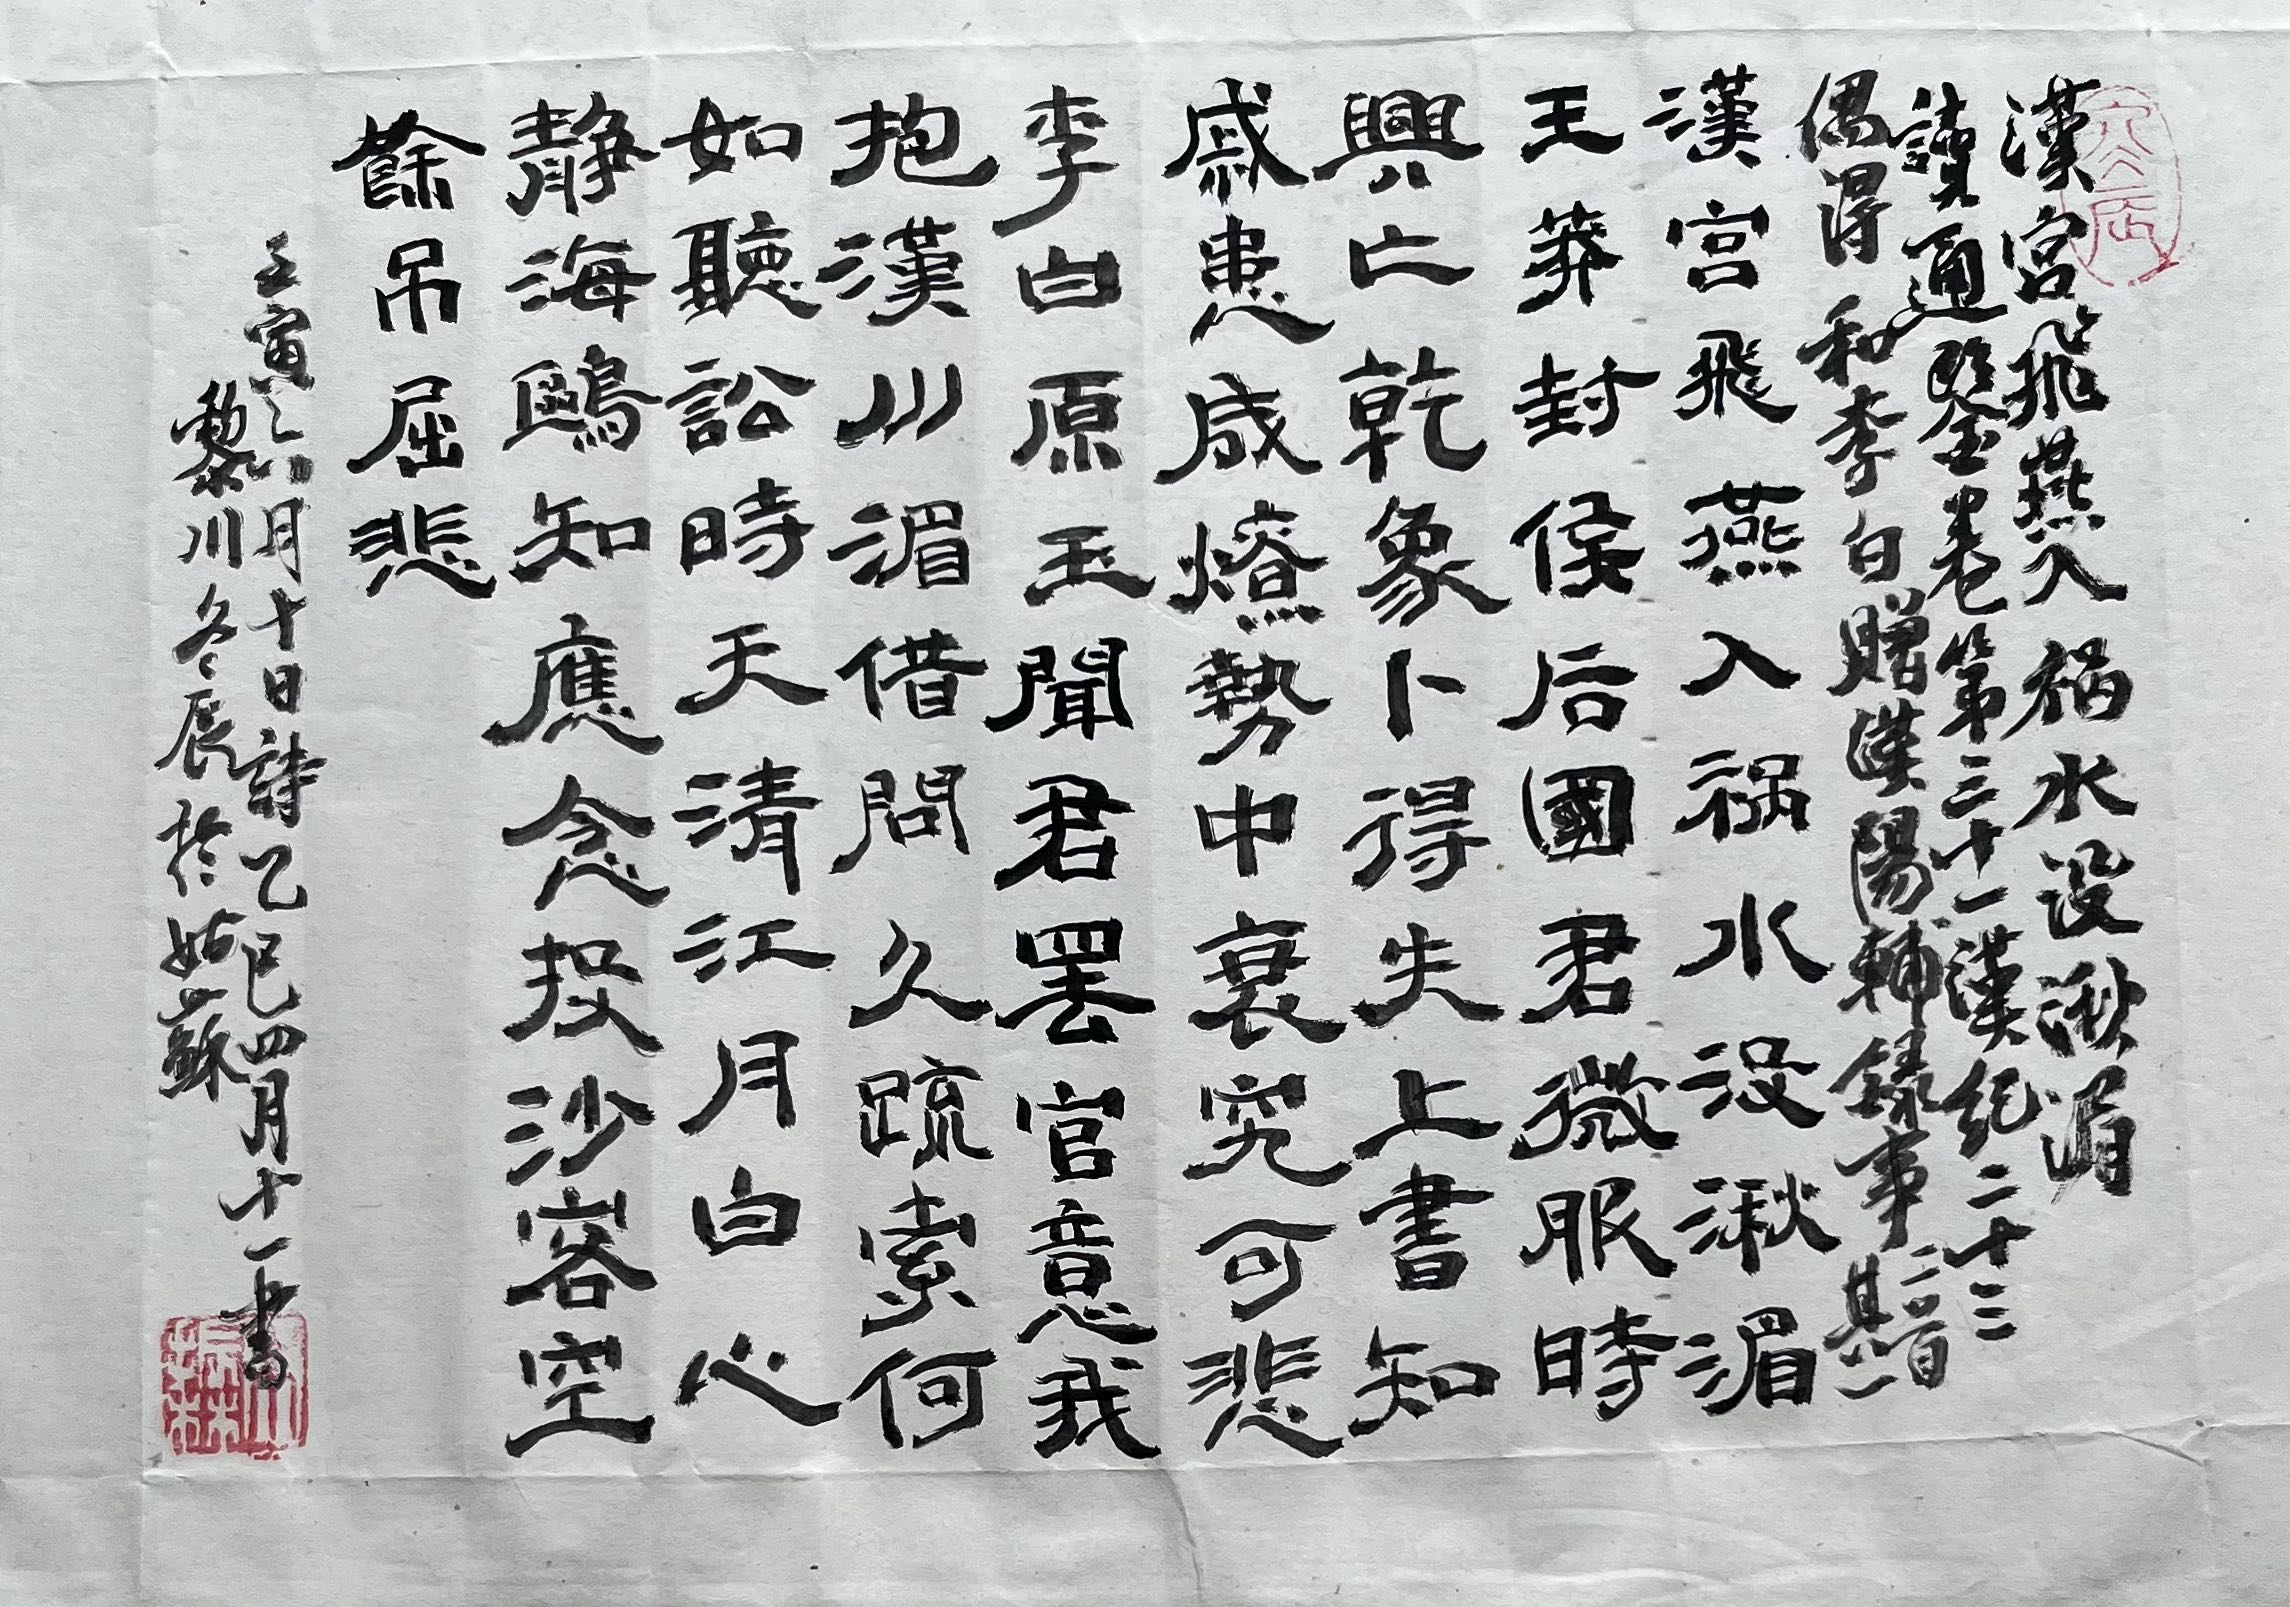 漢宮飛燕入禍水没湫湄
讀通鑒卷第三十一漢紀二十三
偶得和李白贈漢陽輔錄事二首其一
漢宮飛燕入禍水没湫湄
王莽封侯后國君微服時
興亡乾象卜得失上書知
戚患成燎勢中衰究可悲
李白原玉聞君罷官意我
抱漢川湄借問久疏索何
如聽訟時天清江月白心
靜海鷗知應念投沙客空
餘吊屈悲
壬寅六月十日詩乙巳四月十一書
黎川冬辰於姑蘇